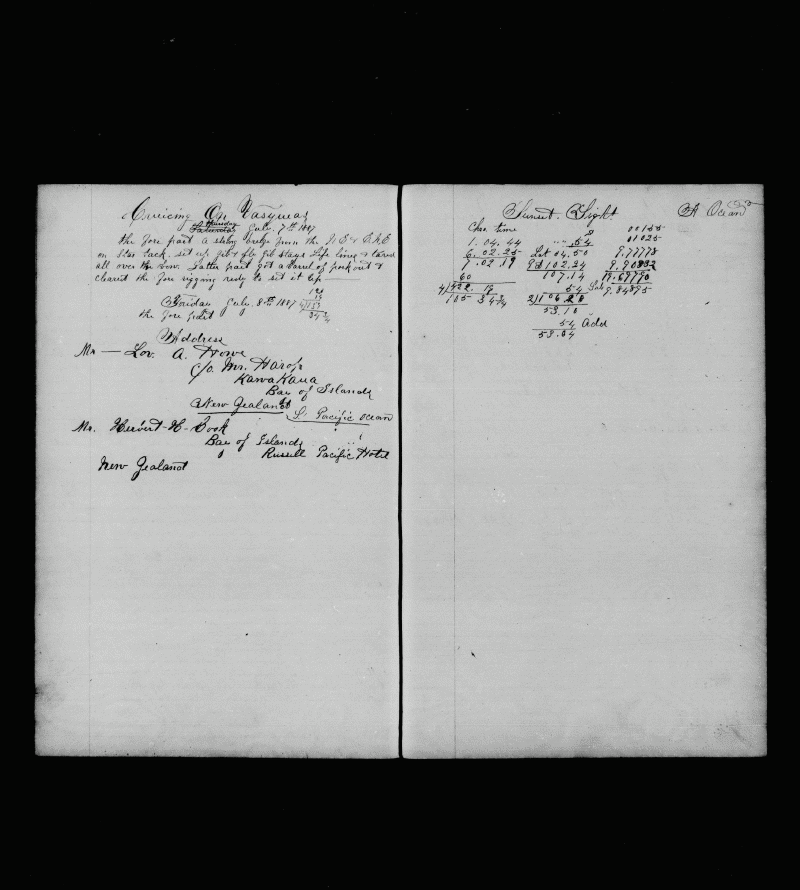 Cruicing On Yasqueas
Thursday
Saturday July 7th 1887
the fore part a steby breze from the N E & E N E
on Star tack. set up Jib & fly Jib Stays Life lines & tared
all over the bow. Latter part got a barrel of pork out &
cleared the fore rigging redy to set it up
Friday July 8th 1887
the fore part
Address
Mr — Lov. A. Howe
c/o. Mr. Harop
Kawakaua
Bay of Islands
New Zealand
S. Pacific ocean
Mr. Hervert-H-Cook
Bay of Islands
Russell Pacific Hotel
New Zealand
Sunset. Sight
A Ocean
Chro. time
1. 04. 44
6. 02. 25
7. 02. 19
60
4)422. 19
105 34 3/4
54
Lat 04. 50
Pd 102.24
107.14
54
2)106 28
53.10
54 Add
53.04
00155
01025
9.77778
9.90832
19.69790
9.84895